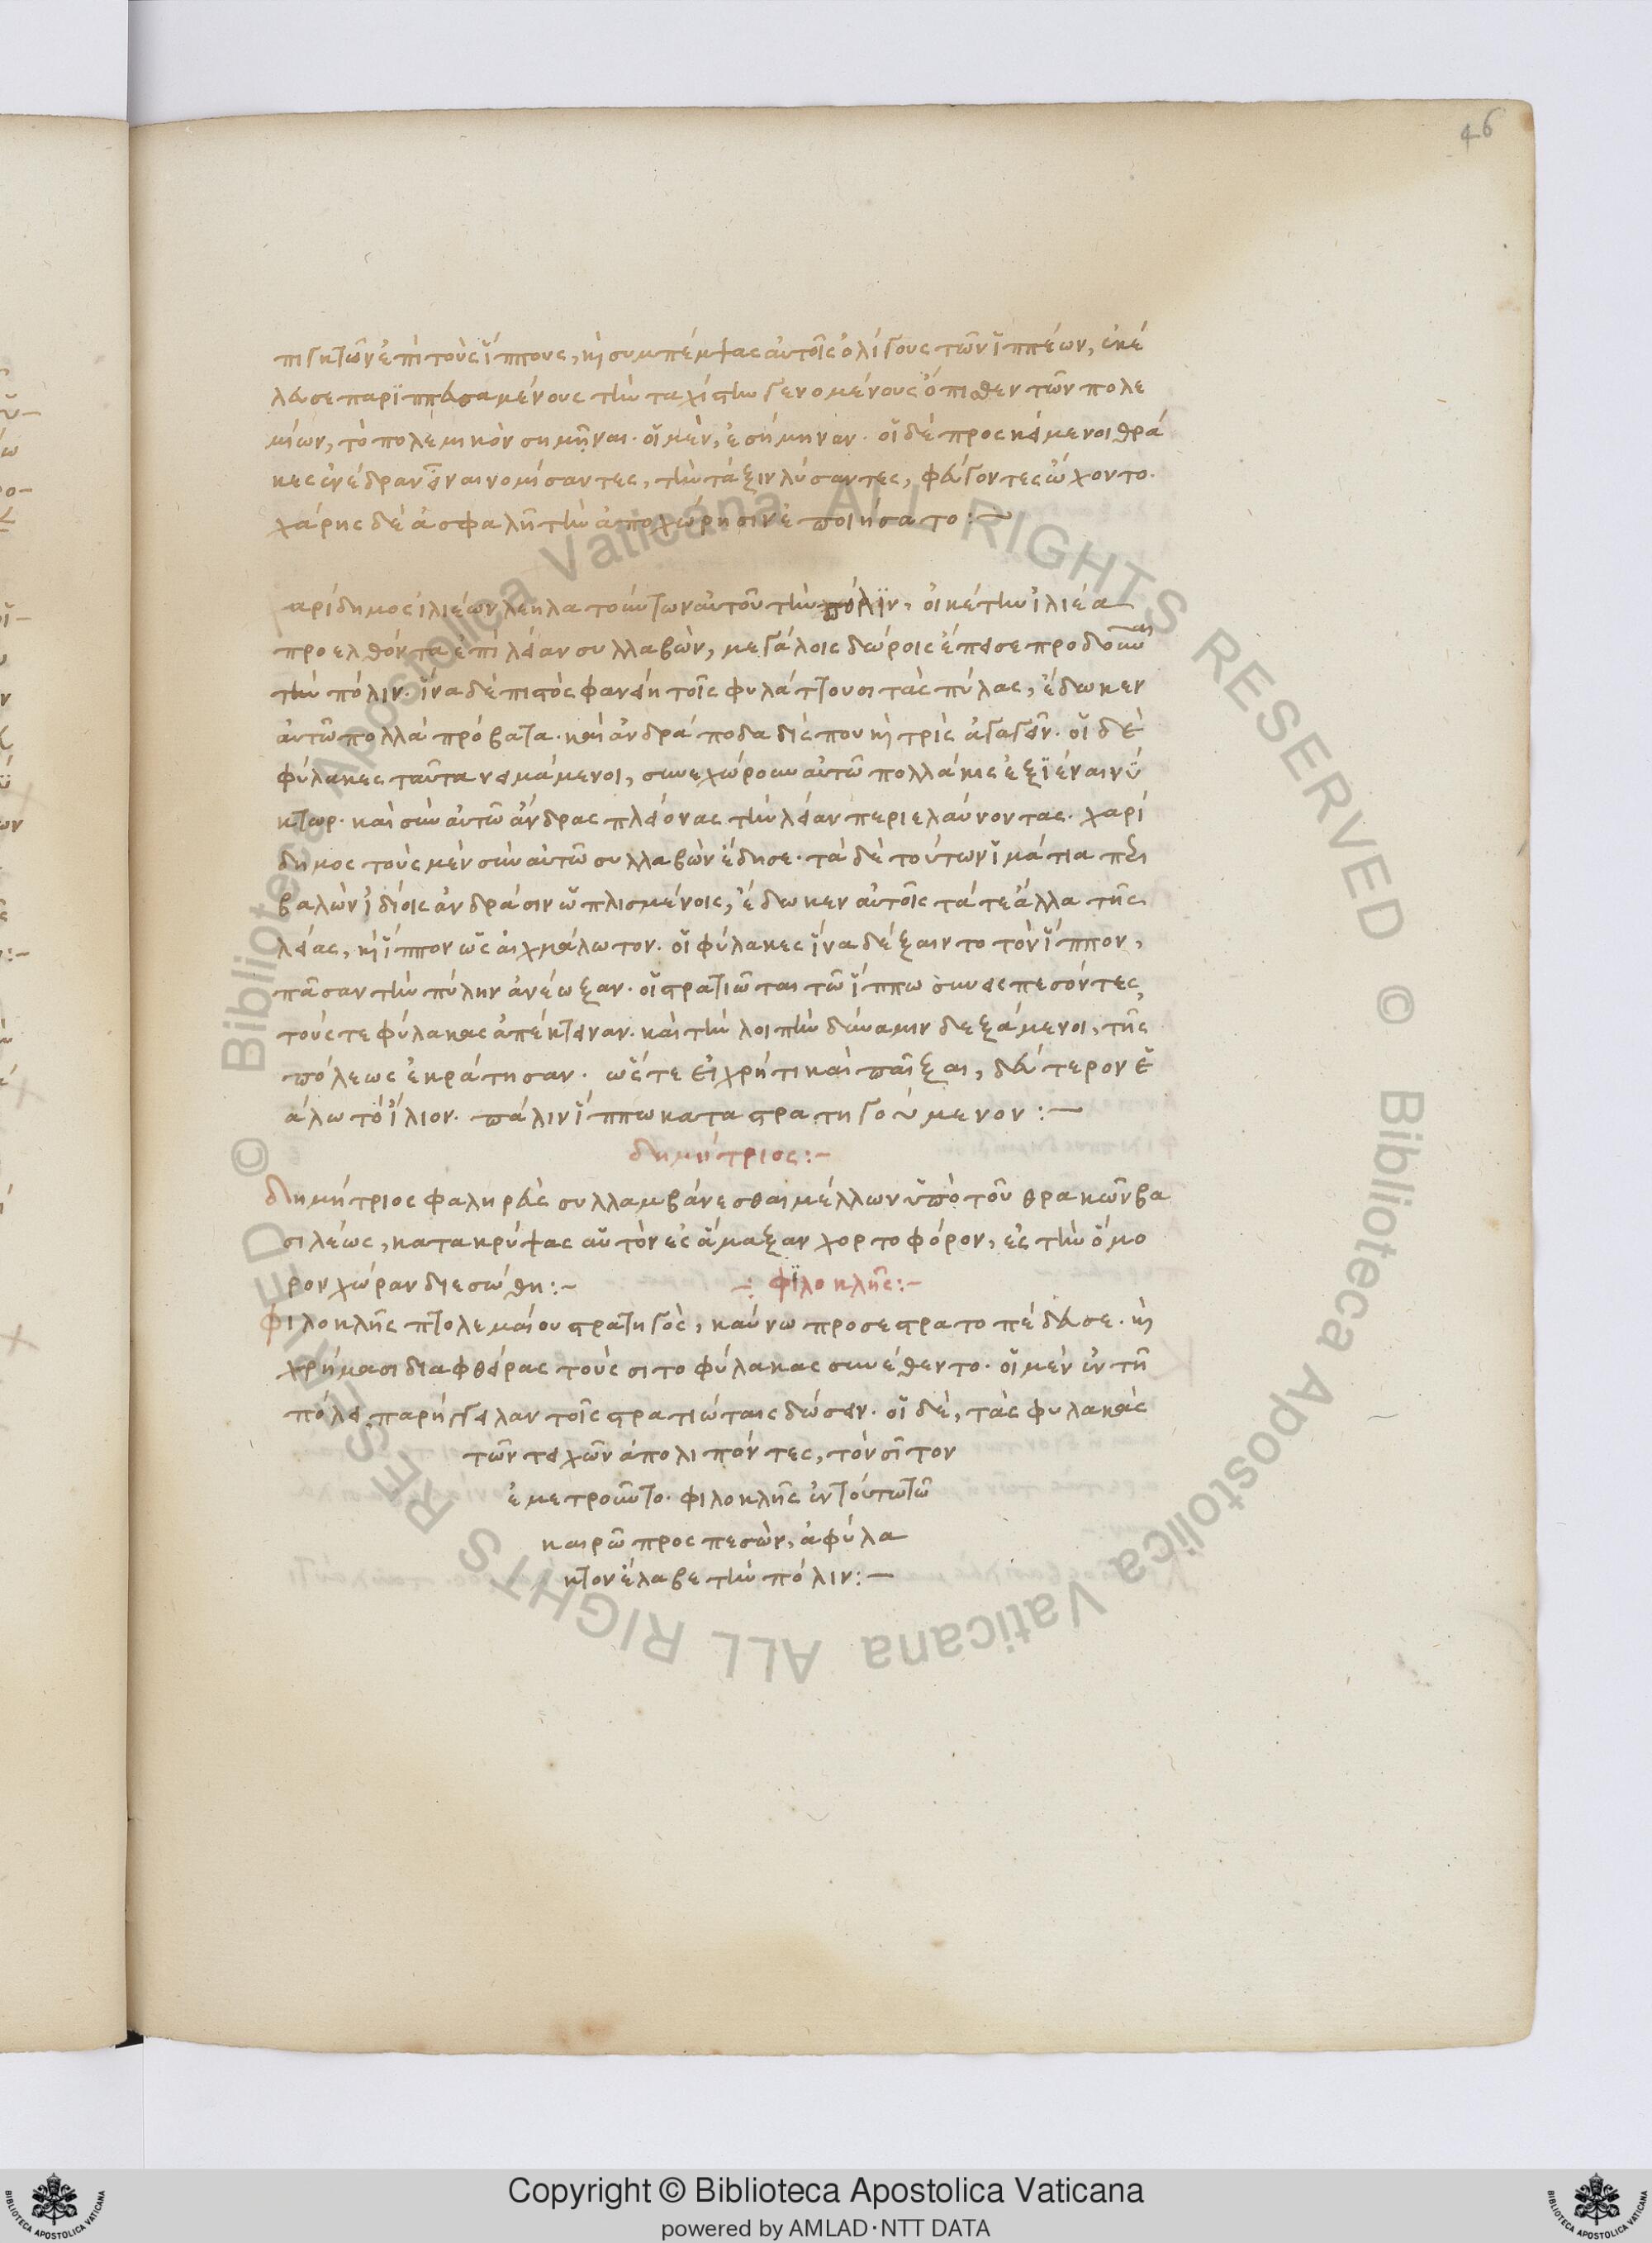 46
πιγκτῶν ἐπὶ τοὺς ἵππους, κỳ συμπέμψας αὐτοῖς ὀλίγους τῶν ἱππέων, ἐκέ
λευσε παριππευσαμένους τὴν ταχίστην γενομένους ὄπισθεν τῶν πολε
μίων, τὸ πολεμικὸν σημῆναι. οἱ μὲν, ἐσήμηναν. οἱ δὲ προσκείμενοι θρᾶ
κες ἐνέδραν εἶναι νομίσαντες, τὴν τάξιν λύσαντες, φεύγοντες ὤχοντο.
χάρης δὲ ἀσφαλῆ τὴν ἀποχώρησιν ἐποιήσατο:~
αρίδημος ἰλιέων λεηλατούντων αὐτοῦ τὴν πόλιν, οἰκέτην ἰλιέα
προελθόντα ἐπὶ λείαν συλλαβὼν, μεγάλοις δώροις ἔπεισε προδοῦναι
τὴν πόλιν. ἵνα δὲ πιστὸς φανείη τοῖς φυλάττουσι τὰς πύλας, ἔδωκεν
αὐτῶ πολλὰ πρόβατα. καὶ ἀνδράποδα δίς που καὶ τρὶς ἀγαγεῖν. οἱ δὲ
φύλακες ταῦτα νειμάμενοι, συνεχώρουν αὐτῶ πολλάκις ἐξϊέναι νύ
κτωρ. καὶ σὺν αὐτῶ ἄνδρας πλείονας τὴν λείαν περιελαύνοντας. χαρί
δημος τοὺς μὲν σὺν αὐτῶ συλλαβὼν ἔδησε. τὰ δὲ τούτων ἱμάτια περι
βαλὼν ἰδίοις ἀνδράσιν ὡπλισμένοις, ἔδωκεν αὐτοῖς τά τε ἄλλα τῆς
λείας, καὶ ἵππον ὡς αἰχμάλωτον. οἱ φύλακες ἵνα δέξαιντο τὸν ἵππον,
πᾶσαν τὴν πύλην ἀνέωξαν. οἱ στρατιῶται τῶ ἵππω συνεισπεσόντες,
τούς τε φύλακας ἀπέκτειναν. καὶ τὴν λοιπὴν δύναμιν δεξάμενοι, τῆς
πόλεως ἐκράτησαν. ὥστε εἰ χρή τι καὶ παῖξαι, δεύτερον ἑ
άλω τὸ ἴλιον. πάλιν ἵππω καταστρατηγούμενον:~
δημήτριος:~
Δημήτριος φαληρεὺς συλλαμβάνεσθαι μέλλων ὑπὸ τοῦ θρακῶν βα
σιλέως, κατακρύψας αὑτὸν ἐς ἅμαξαν χορτοφόρον, ἐς τὴν ὅμο
ρον χώραν διεσώθη:~ ÷ φϊλοκλῆς:~
Φιλοκλῆς πτολεμαίου στρατηγὸς, καύνω προσεστρατοπέδευσε. καὶ
χρήμασι διαφθείρας τοὺς σιτοφύλακας συνέθεντο. οἱ μὲν ἐν τῆ
πόλει παρήγγειλαν τοῖς στρατιώταις δώσειν. οἱ δὲ, τὰς φυλακὰς
τῶν τειχῶν ἀπολιπόντες, τὸν σῖτον
ἐμετροῦντο. φιλοκλῆς ἐν τούτω τῶ
καιρῶ προσπεσὼν, ἀφύλα
κτον ἔλαβε τὴν πόλιν:~
Copyright © Biblioteca Apostolica Vaticana
powered by AMLAD·NTT DATA